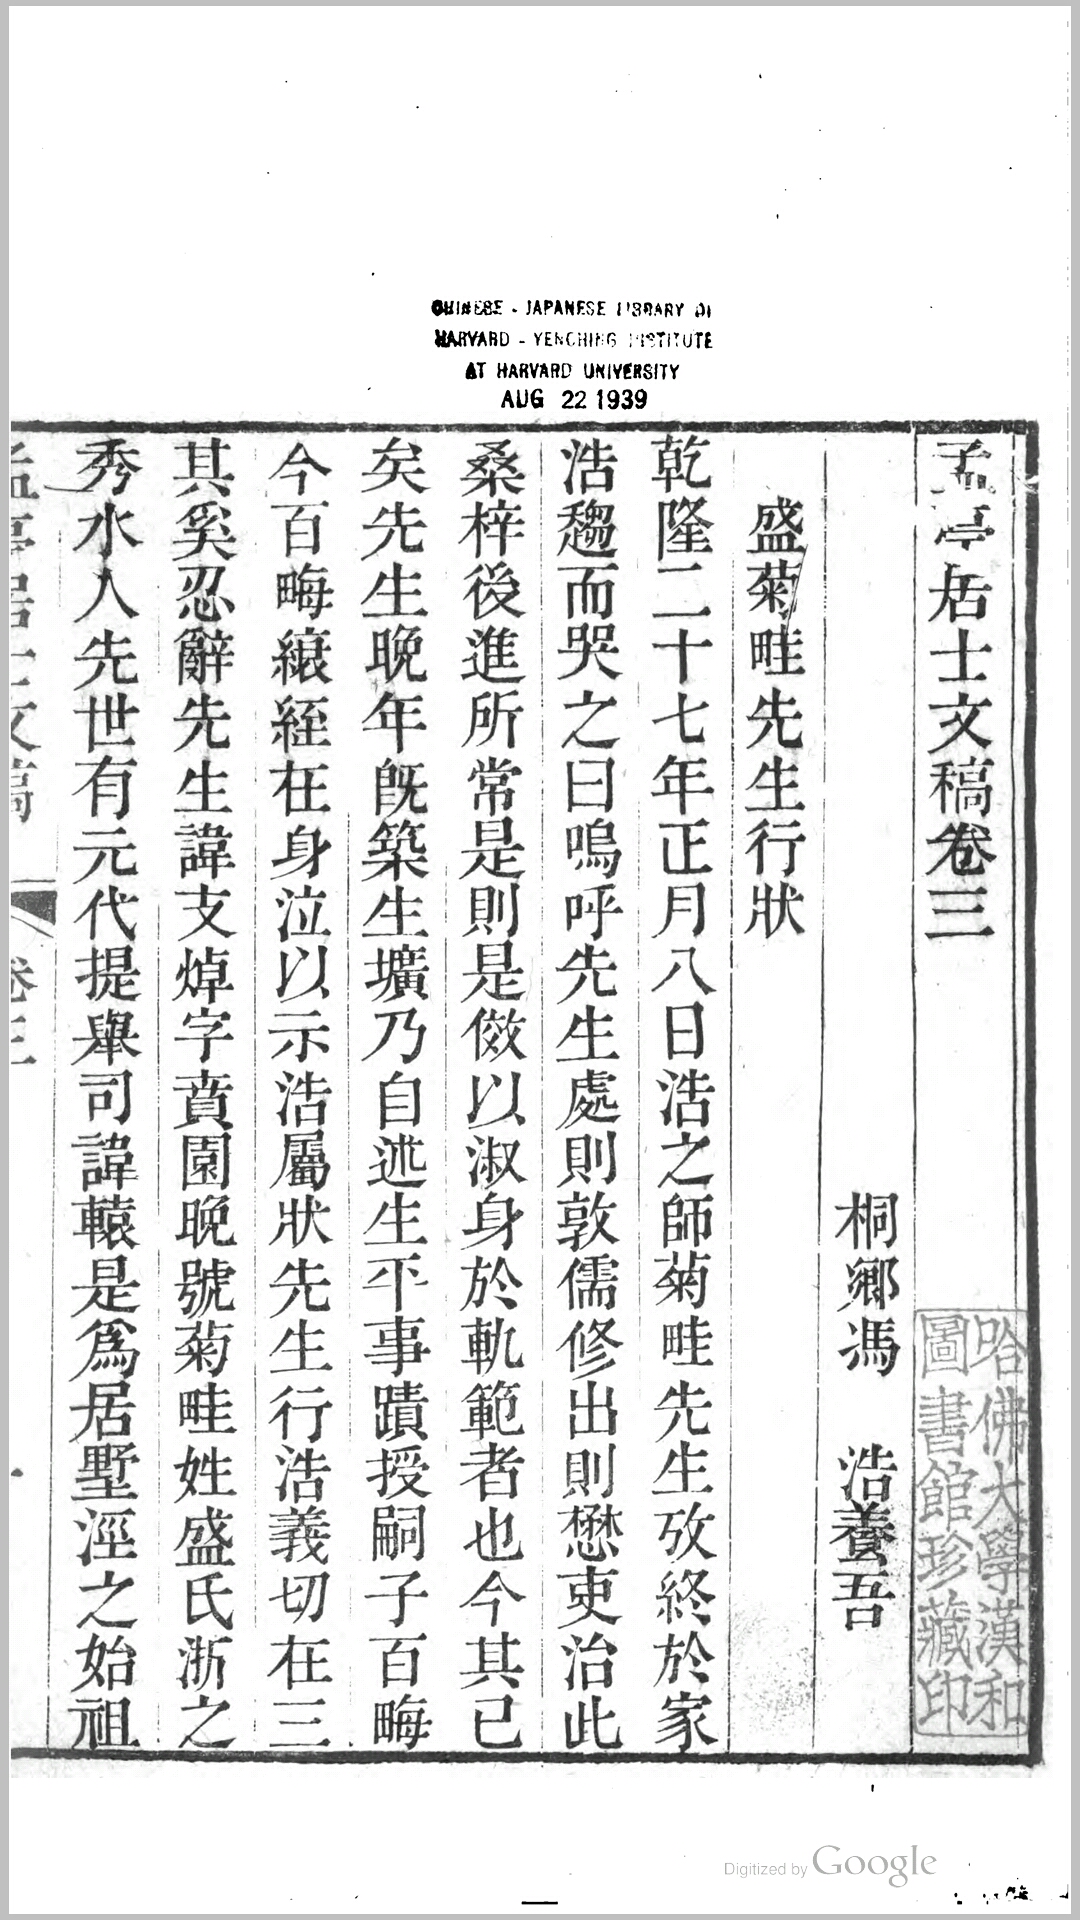 CHINESE - JAPANESE LIBRARY OF
HARVARD - YENCHING INSTITUTE
AT HARVARD UNIVERSITY
AUG 22 1939
孟亭居士文稿卷三
桐鄉馮 浩養吾
盛菊畦先生行狀
乾隆二十七年正月八日浩之師菊畦先生攷終於家
浩趨而哭之曰嗚呼先生處則敦儒修出則懋吏治此
桑梓後進所常是則是傚以淑身於軌範者也今其已
矣先生晚年旣築生壙乃自述生平事蹟授嗣子百畮
今百畮縗絰在身泣以示浩屬狀先生行浩義切在三
其奚忍辭先生諱支焯字賁園晚號菊畦姓盛氏浙之
秀水人先世有元代提舉司諱轅是爲居墅涇之始祖
孟亭居士文稿
卷三
一
哈佛大學漢和
圖書館珍藏印
Digitized by Google